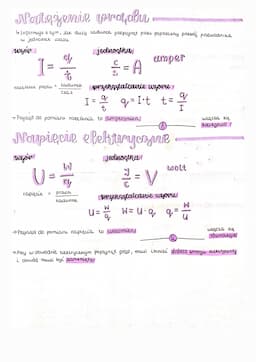 Natężenie prądu
↳ informuje o tym, jak duży ładunek przepłynął przez poprzeczny przekrój przewodnika
w jednostce czasu
wzór jednostka
I = q/t C/s = A amper
natężenie prądu = ładunek/czas
przekształcanie wzoru
I = q/t q = I·t t = q/I
→ Przyrząd do pomiaru natężenia to amperomierz
włącza się szeregowo
A
Napięcie elektryczne
wzór jednostka
U = W/q J/C = V wolt
napięcie = praca/ładunek
przekształcanie wzoru
U = W/q W = U·q q = W/U
→ Przyrząd do pomiaru napięcia to woltomierz
włącza się równolegle
V
→ Aby w obwodzie elektrycznym popłynął prąd, musi istnieć źródło energii elektrycznej
i obwód musi być zamknięty